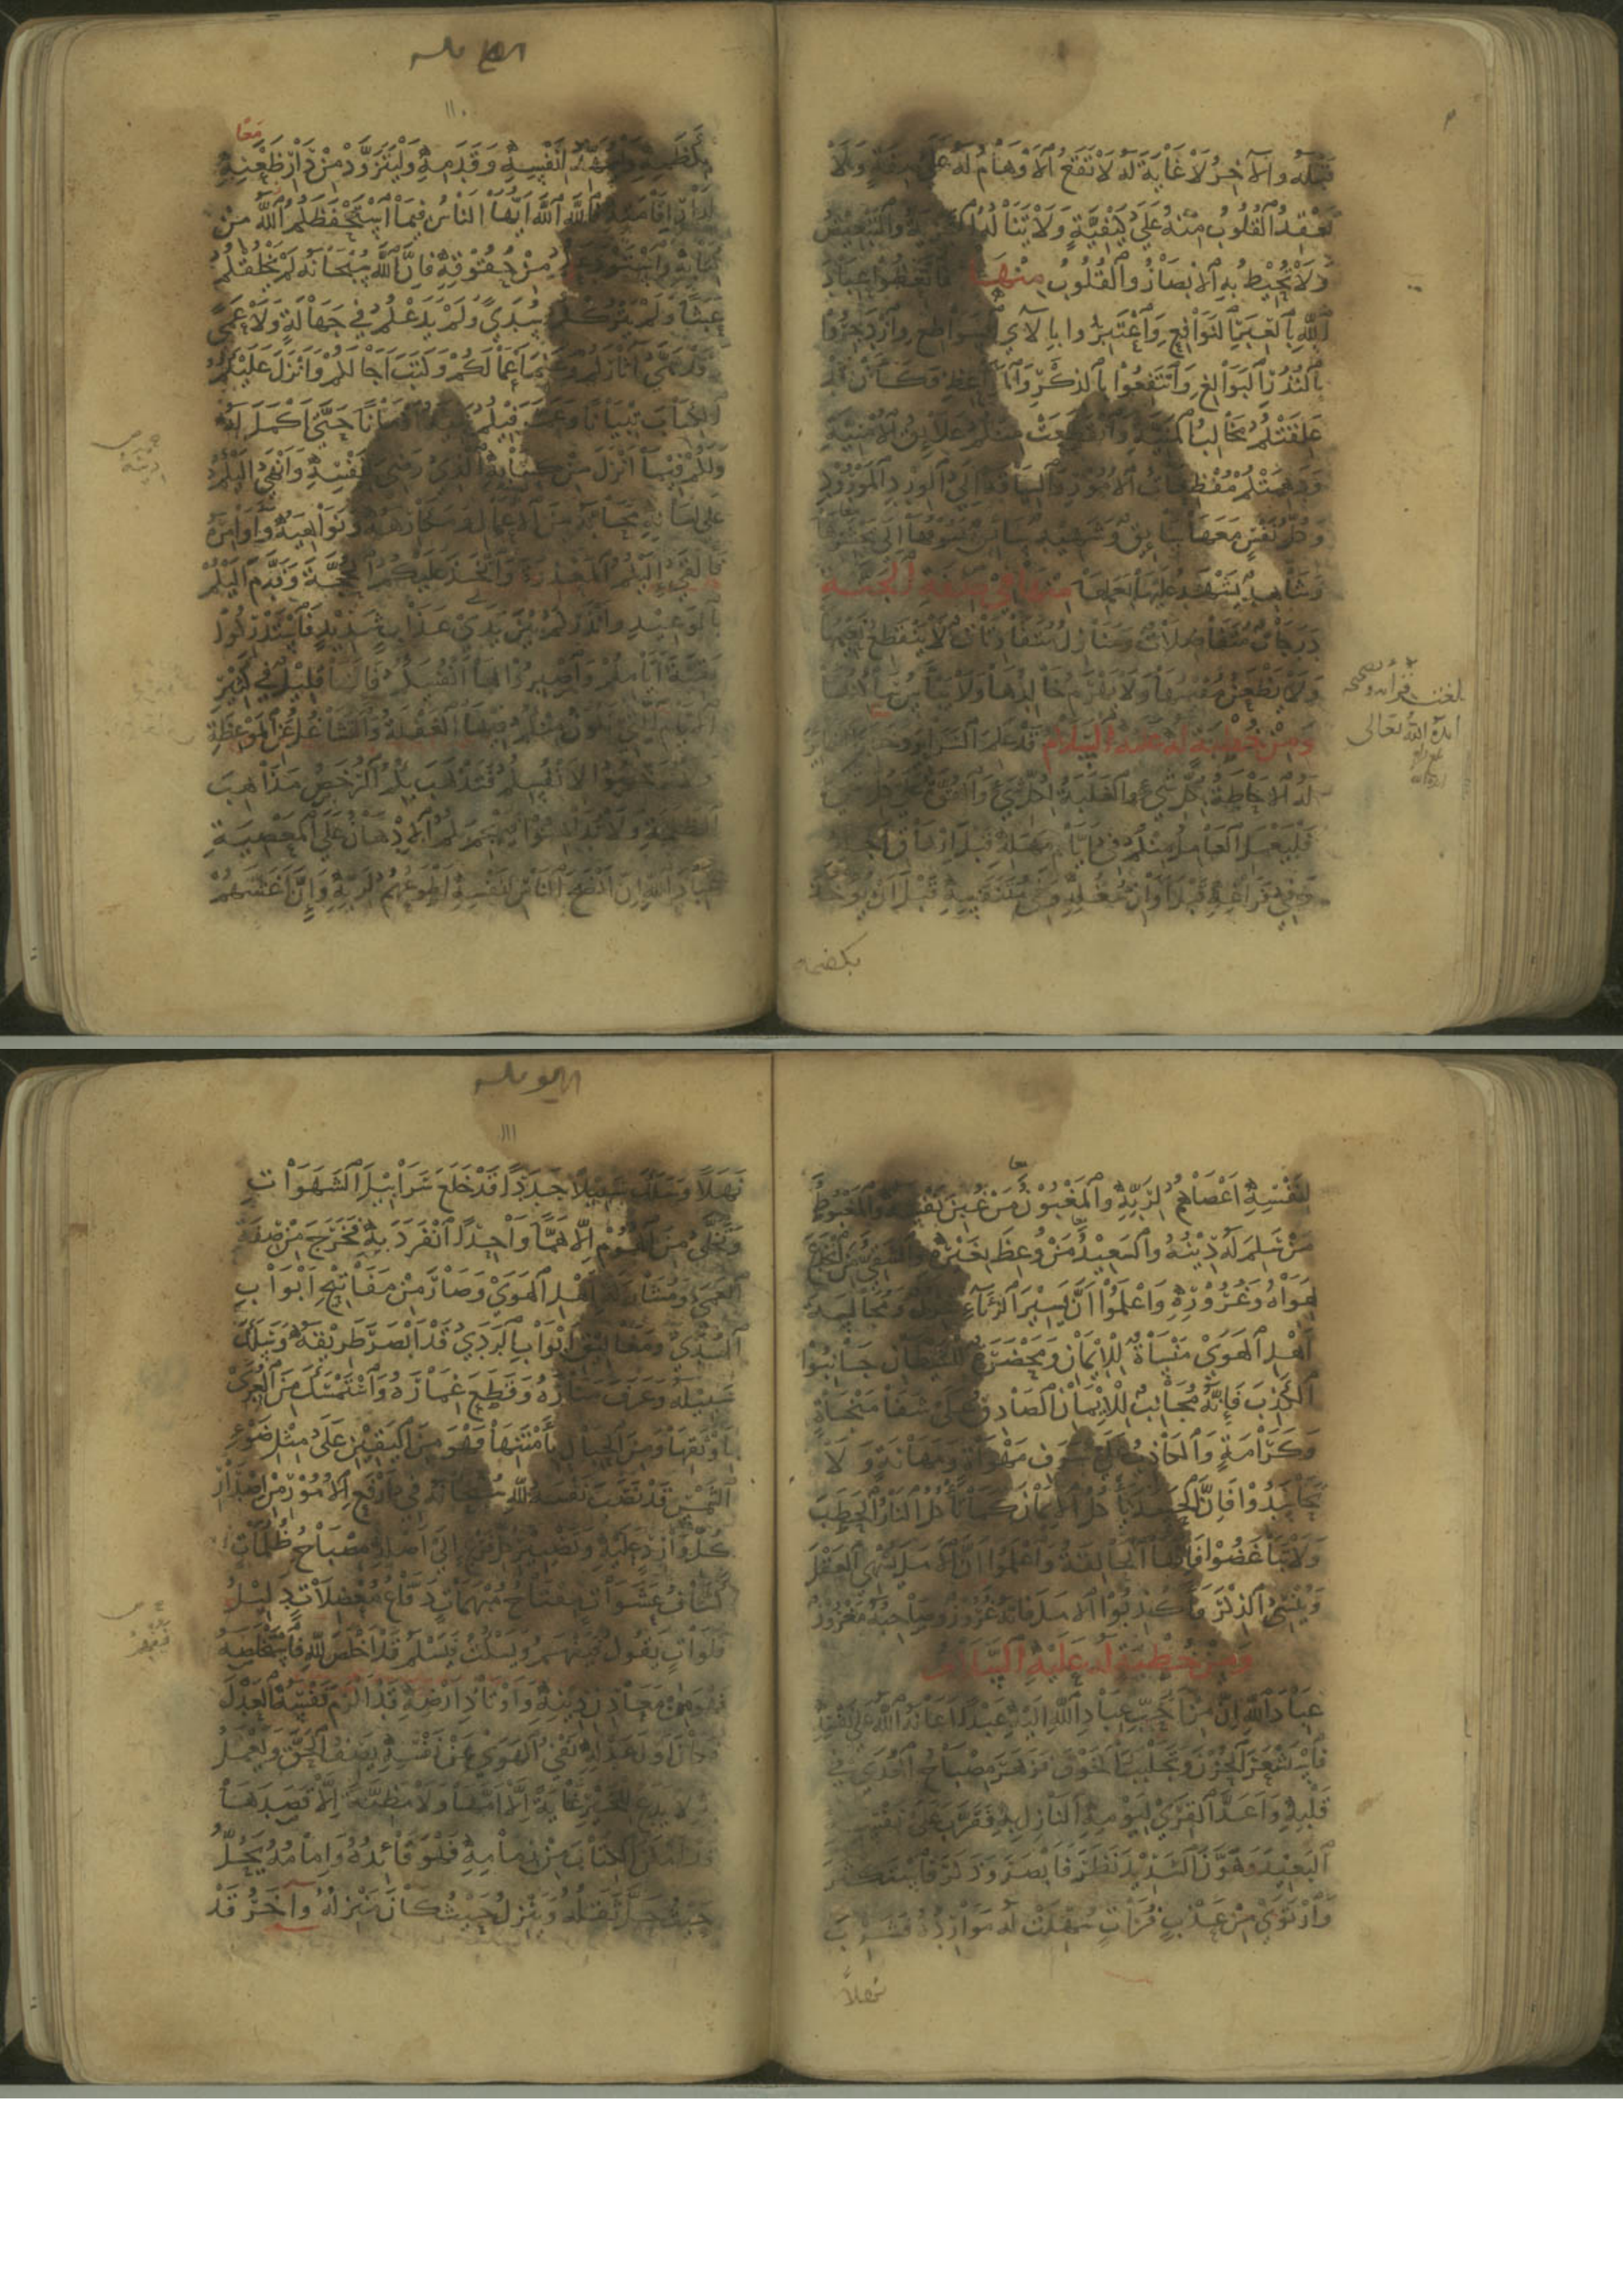 قبله والآخر لا غاية له لا تقع الأوهام له على صفة ولا
تعقد القلوب منه على كيفية ولا تناله التجزئة والتبعيض
ولا تحيط به الأبصار والقلوب منها فاتعظوا عباد
الله بالعبر النوافع واعتبروا بالآي السواطع وازدجروا
بالنذر البوالغ وانتفعوا بالذكر والمواعظ فكأن قد
علقتكم مخالب المنية وانقطعت منكم علائق الأمنية
ودهمتكم مفظعات الأمور والسياقة إلى الورد المورود
وكل نفس معها سائق وشهيد سائق يسوقها إلى محشرها
وشاهد يشهد عليها بعملها منها في صفة الجنة
درجات متفاضلات ومنازل متفاوتات لا ينقطع نعيمها
ولا يظعن مقيمها ولا يهرم خالدها ولا يبأس ساكنها
ومن خطبة له عليه السلام قد علم السرائر وخبر الضمائر
له الإحاطة بكل شيء والغلبة لكل شيء والقوة على كل شيء
فليعمل العامل منكم في أيام مهله قبل إرهاق أجله
وفي فراغه قبل أوان شغله وفي متنفسه قبل أن يؤخذ
بكظمه
١١٠
معا
بكظمه وليمهد لنفسه وقدمه وليتزود من دار ظعنه
لدار إقامته فالله الله أيها الناس فيما استحفظكم الله من
كتابه واستودعكم من حقوقه فإن الله سبحانه لم يخلقكم
عبثا ولم يترككم سدى ولم يدعكم في جهالة ولا عمى
قد سمى آثاركم وعلم أعمالكم وكتب آجالكم وأنزل عليكم
الكتاب تبيانا وعمر فيكم نبيه أزمانا حتى أكمل له
ولكم فيما أنزل من كتابه الذي رضي لنفسه وأنهى إليكم
على لسانه محابه من الأعمال ومكارهه ونواهيه وأوامره
فألقى إليكم المعذرة واتخذ عليكم الحجة وقدم إليكم
بالوعيد وأنذركم بين يدي عذاب شديد فاستدركوا
بقية أيامكم واصبروا لها أنفسكم فإنها قليل في كثير
الأيام التي تكون منكم فيها الغفلة والتشاغل عن الموعظة
ولا ترخصوا لأنفسكم فتذهب بكم الرخص مذاهب
الظلمة ولا تداهنوا فيهجم بكم الإدهان على المعصية
عباد الله إن أنصح الناس لنفسه أطوعهم لربه وإن أغشهم
لنفسه أعصاهم لربه والمغبون من غبن نفسه والمغبوط
من سلم له دينه والسعيد من وعظ بغيره والشقي من انخدع
هواه وغروره واعلموا أن يسير الرياء شرك ومجالسة
أهل الهوى منساة للإيمان ومحضرة للشيطان جانبوا
الكذب فإنه مجانب للإيمان الصادق على شفا منجاة
وكرامة والكاذب على شرف مهواة ومهانة ولا
تحاسدوا فإن الحسد يأكل الإيمان كما تأكل النار الحطب
ولا تباغضوا فإنها الحالقة واعلموا أن الأمل يسهي العقل
وينسي الذكر فأكذبوا الأمل فإنه غرور وصاحبه مغرور
ومن خطبة له عليه السلام
عباد الله إن من أحب عباد الله إليه عبدا أعانه الله على نفسه
فاستشعر الحزن وتجلبب الخوف فزهر مصباح الهدى في
قلبه وأعد القرى ليومه النازل به فقرب على نفسه
البعيد وهون الشديد نظر فأبصر وذكر فاستكثر
وارتوى من عذب فرات سهلت له موارده فشرب
نهلا
١١١
نهلا وسلك سبيلا جددا قد خلع سرابيل الشهوات
وتخلى من الهموم إلا هما واحدا انفرد به فخرج من صفة
العمى ومشاركة أهل الهوى وصار من مفاتيح أبواب
الهدى ومغاليق أبواب الردى قد أبصر طريقه وسلك
سبيله وعرف مناره وقطع غماره واستمسك من العرى
بأوثقها ومن الحبال بأمتنها فهو من اليقين على مثل ضوء
الشمس قد نصب نفسه لله سبحانه في أرفع الأمور من إصدار
كل وارد عليه وتصيير كل فرع إلى أصله مصباح ظلمات
كشاف عشوات مفتاح مبهمات دفاع معضلات دليل
فلوات يقول فيفهم ويسكت فيسلم قد أخلص لله فاستخلصه
فهو من معادن دينه وأوتاد أرضه قد ألزم نفسه العدل
فكان أول عدله نفي الهوى عن نفسه يصف الحق ويعمل
به لا يدع للخير غاية إلا أمها ولا مظنة إلا قصدها
قد أمكن الكتاب من زمامه فهو قائده وإمامه يحل
حيث حل ثقله وينزل حيث كان منزله وآخر قد